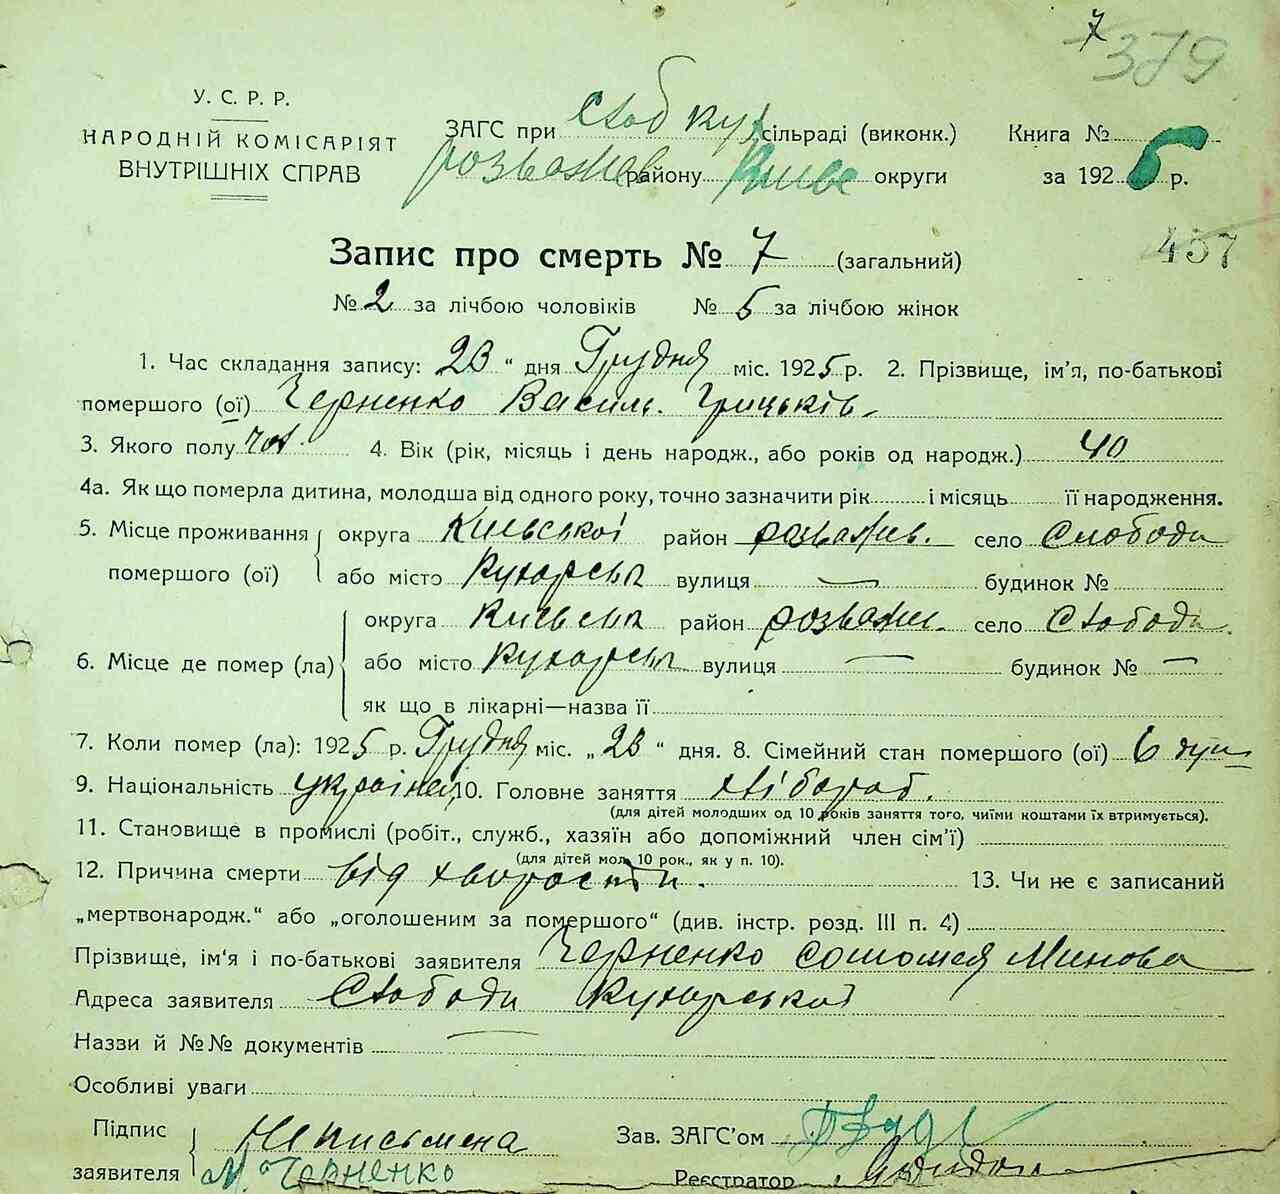 7
379
У. С. Р. Р.
НАРОДНІЙ КОМІСАРІЯТ
ВНУТРІШНІХ СПРАВ
ЗАГС при Слоб Кух сільраді (виконк.)
розважев району Київс округи
Книга №
за 1925 р.
457
Запис про смерть № 7 (загальний)
№ 2 за лічбою чоловіків № 5 за лічбою жінок
1. Час складання запису: 23 “ дня Грудня міс. 1925 р. 2. Прізвище, ім'я, по-батькові
помершого (ої) Черненко Василь. Грицьків.
3. Якого полу чол. 4. Вік (рік, місяць і день народж., або років од народж.) 40
4а. Як що померла дитина, молодша від одного року, точно зазначити рік і місяць її народження.
5. Місце проживання помершого (ої) округа Київської район розважев. село Слобода
або місто Кухарська вулиця — будинок №
6. Місце де помер (ла) округа Київська район розваже. село Слобода.
або місто Кухарська вулиця — будинок № —
як що в лікарні—назва її
7. Коли помер (ла): 1925 р. Грудня міс. „23“ дня. 8. Сімейний стан помершого (ої) 6 душ
9. Національність україне 10. Головне заняття хлібороб.
(для дітей молодших од 10 років заняття того, чиїми коштами їх втримується).
11. Становище в промислі (робіт., служб., хазяїн або допоміжний член сім'ї)
(для дітей мол. 10 рок., як у п. 10).
12. Причина смерти від хворости. 13. Чи не є записаний
„мертвонародж.“ або „оголошеним за помершого“ (див. інстр. розд. III п. 4)
Прізвище, ім'я і по-батькові заявителя Черненко Соломея Минова
Адреса заявителя Слобода Кухарської
Назви й №№ документів —
Особливі уваги
Підпис заявителя Неписьмена
М. Черненко
Зав. ЗАГС'ом
Реєстратор